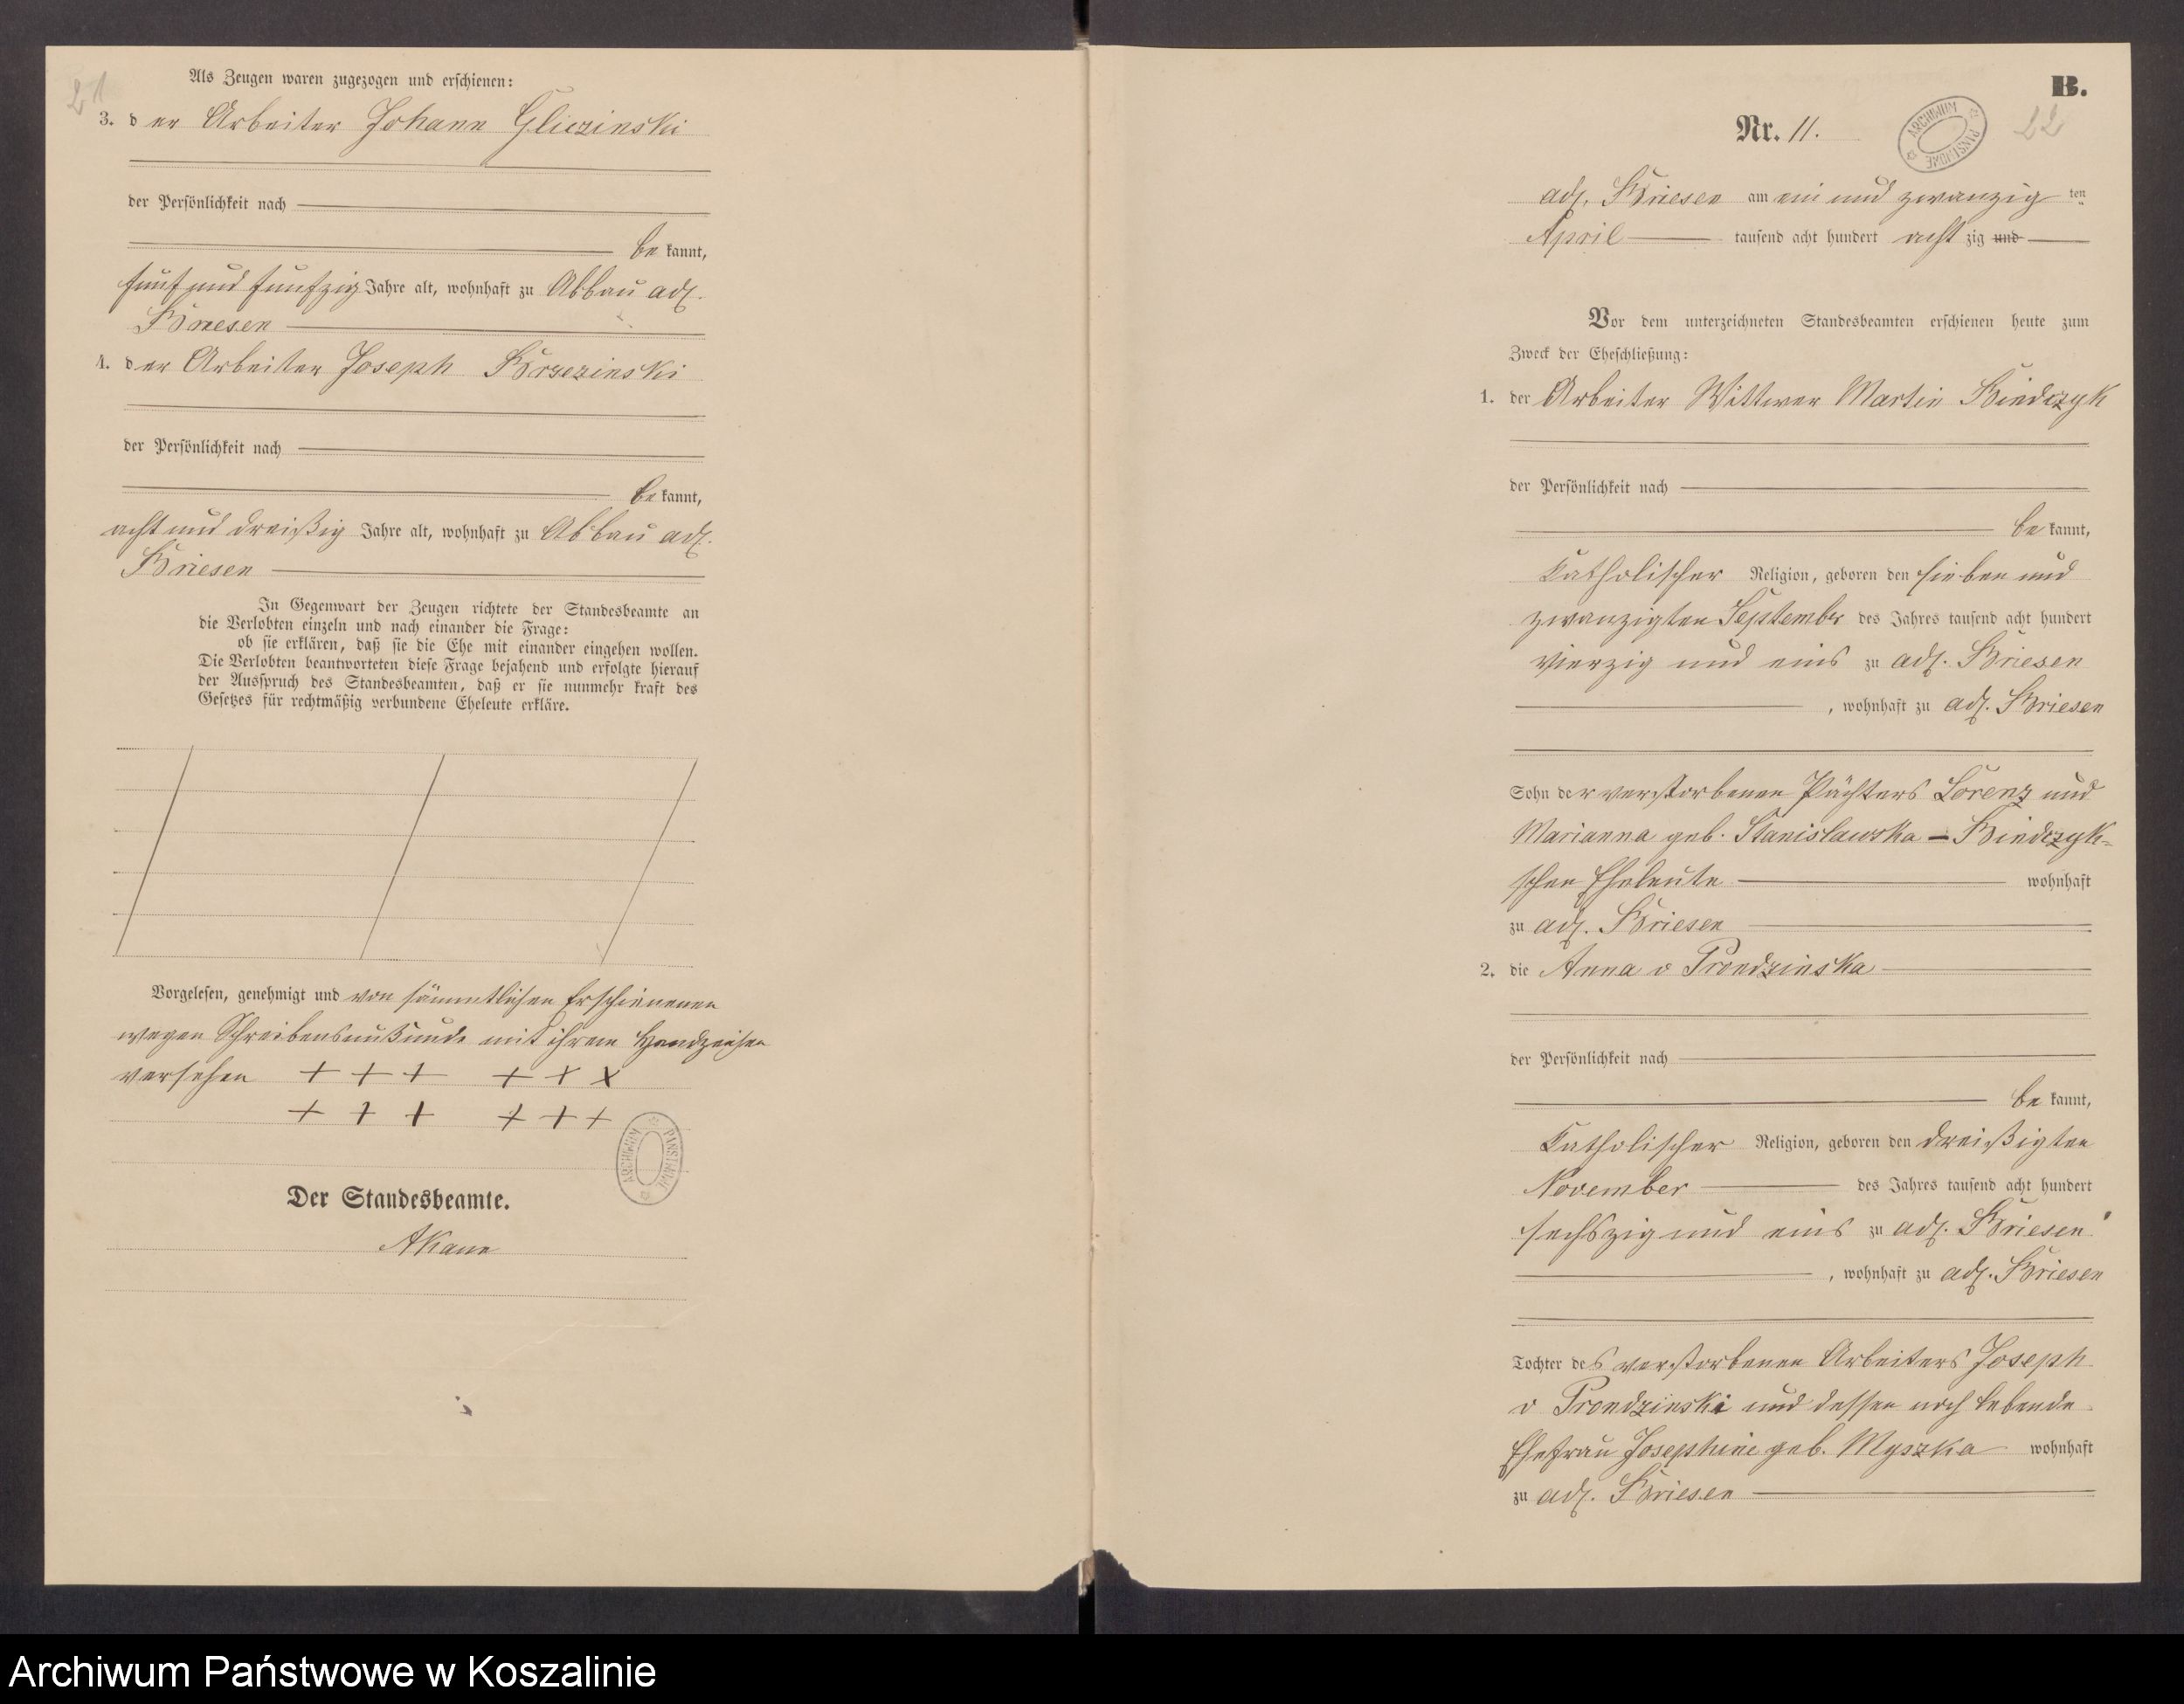 21
Als Zeugen waren zugezogen und erschienen:
3. der Arbeiter Johann Gliczinski
der Persönlichkeit nach
bekannt,
fünf und fünfzig Jahre alt, wohnhaft zu Abbau adl.
Briesen
4. der Arbeiter Joseph Brzezinski
der Persönlichkeit nach
bekannt,
acht und dreißig Jahre alt, wohnhaft zu Abbau adl.
Briesen
In Gegenwart der Zeugen richtete der Standesbeamte an
die Verlobten einzeln und nach einander die Frage:
ob sie erklären, daß sie die Ehe mit einander eingehen wollen.
Die Verlobten beantworteten diese Frage bejahend und erfolgte hierauf
der Ausspruch des Standesbeamten, daß er sie nunmehr kraft des
Gesetzes für rechtmäßig verbundene Eheleute erkläre.
Vorgelesen, genehmigt und von sämmtlichen Erschienenen
wegen Schreibensunkunde mit ihrem Handzeichen
versehen + + + + + x
+ + + + + +
ARCHIWUM PAŃSTWOWE
Der Standesbeamte.
AKann
B.
Nr. 11.
ARCHIWUM PAŃSTWOWE
22
adl. Briesen am ein und zwanzig ten
April tausend acht hundert acht zig und
Vor dem unterzeichneten Standesbeamten erschienen heute zum
Zweck der Eheschließung:
1. der Arbeiter Wittwer Martin Bindczyk
der Persönlichkeit nach
bekannt,
Katholischer Religion, geboren den sieben und
zwanzigten September des Jahres tausend acht hundert
vierzig und eins zu adl. Briesen
, wohnhaft zu adl. Briesen
Sohn der verstorbenen Pächters Lorenz und
Marianna geb. Stanislawska – Bindczyk-
schen Eheleute wohnhaft
zu adl. Briesen
2. die Anna v Prondzinska
der Persönlichkeit nach
bekannt,
Katholischer Religion, geboren den dreißigten
November des Jahres tausend acht hundert
sechszig und eins zu adl. Briesen
, wohnhaft zu adl. Briesen
Tochter des verstorbenen Arbeiters Joseph
v Prondzinski und dessen noch lebende
Ehefrau Josephine geb. Myszka wohnhaft
zu adl. Briesen
Archiwum Państwowe w Koszalinie